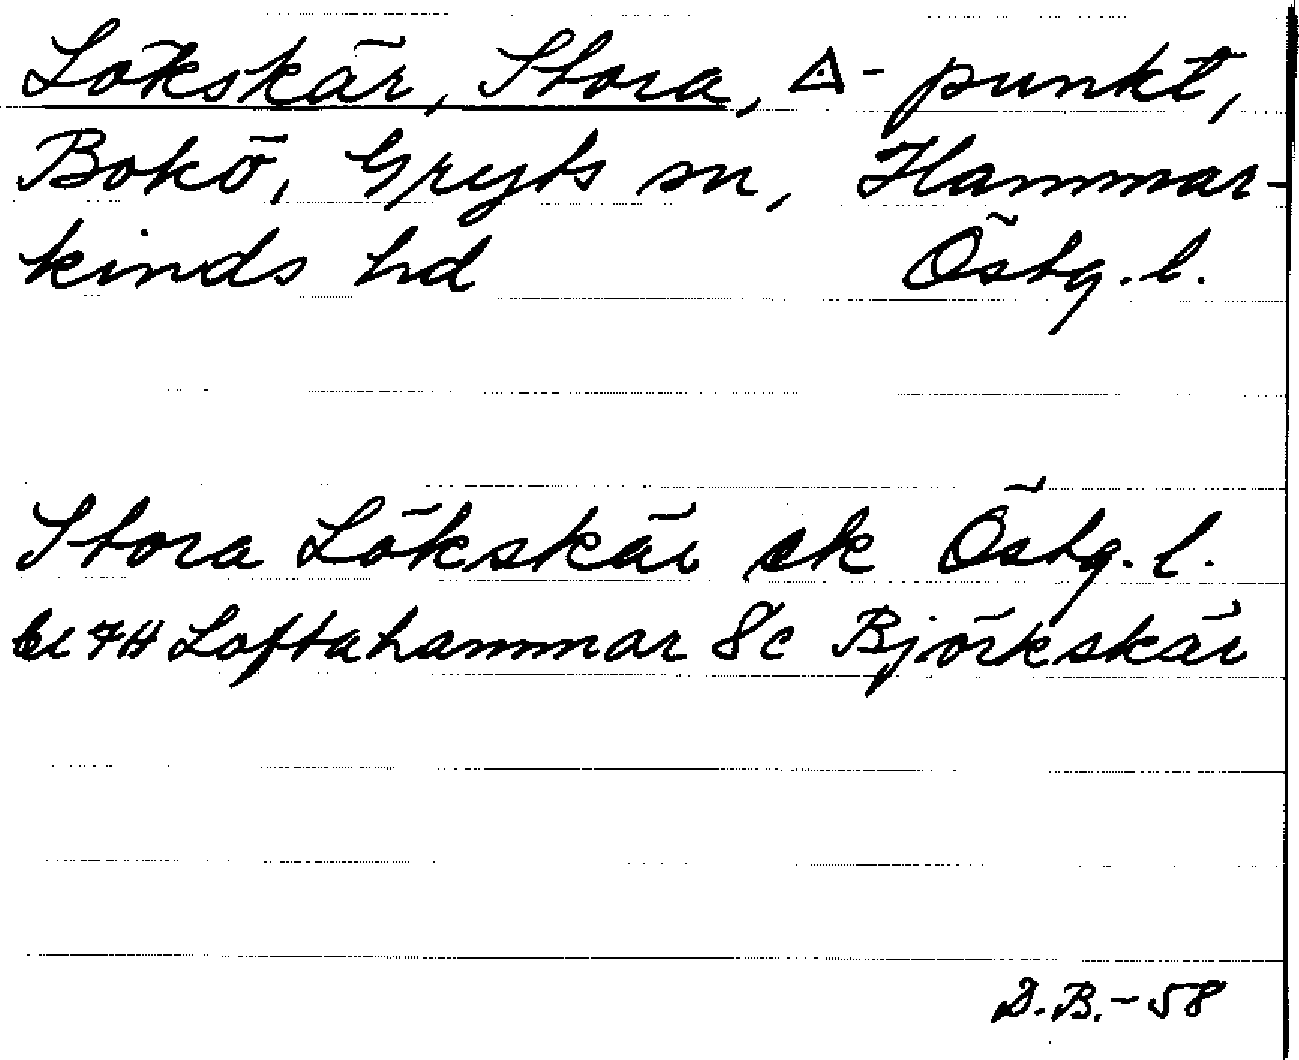 Lökskär, Stora, △-punkt,
Bokö, Gryts sn, Hammar-
kinds hd Östg. l.
Stora Lökskär ek Östg. l.
bl 7H Loftahammar 8c Björkskär
D.B.-58